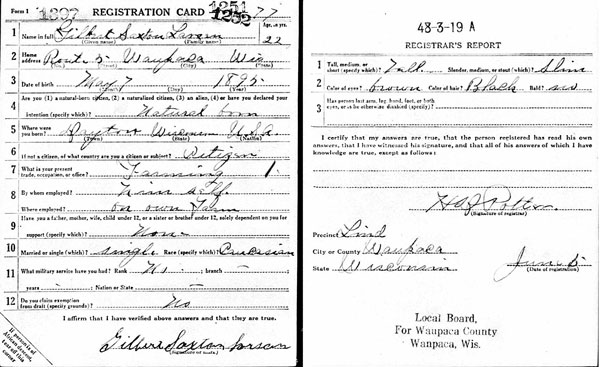 Form 1 1397 REGISTRATION CARD 1251 1252 77
1 Name in full Gilbert Saxton Larson Age, in yrs. 22
(Given name) (Family name)
2 Home address Route 5 Waupaca Wis
(No.) (Street) (City) (State)
3 Date of birth May 7 1895
(Month) (Day) (Year)
4 Are you (1) a natural-born citizen, (2) a naturalized citizen, (3) an alien, (4) or have you declared your
intention (specify which)? Natural born
5 Where were you born? Dayton Wisconsin U.S.A
(Town) (State) (Nation)
6 If not a citizen, of what country are you a citizen or subject? Citizen
7 What is your present trade, occupation, or office? Farming 1
8 By whom employed? Himself
Where employed? on own Farm
9 Have you a father, mother, wife, child under 12, or a sister or brother under 12, solely dependent on you for
support (specify which)? None
10 Married or single (which)? single Race (specify which)? Caucasian
11 What military service have you had? Rank No ; branch —
years — ; Nation or State —
12 Do you claim exemption from draft (specify grounds)? No
I affirm that I have verified above answers and that they are true.
Gilbert Saxton Larson
If person is of African descent, tear off this corner
48-3-19 A
REGISTRAR'S REPORT
1 Tall, medium, or short (specify which)? Tall Slender, medium, or stout (which)? Slim
2 Color of eyes? brown Color of hair? Black Bald? no
3 Has person lost arm, leg, hand, foot, or both
eyes, or is he otherwise disabled (specify)?
I certify that my answers are true, that the person registered has read his own
answers, that I have witnessed his signature, and that all of his answers of which I have
knowledge are true, except as follows:
(Signature of registrar)
Precinct Lind
City or County Waupaca
State Wisconsin June 5
(Date of registration)
Local Board,
For Waupaca County
Waupaca, Wis.